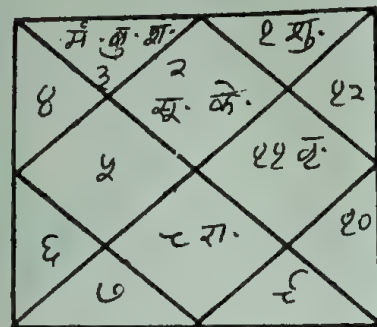 मं. बु. श. १ शु.
३ २
४ सू. के. १२
५ ११ वृ.
६ ८ रा. १०
७ ९